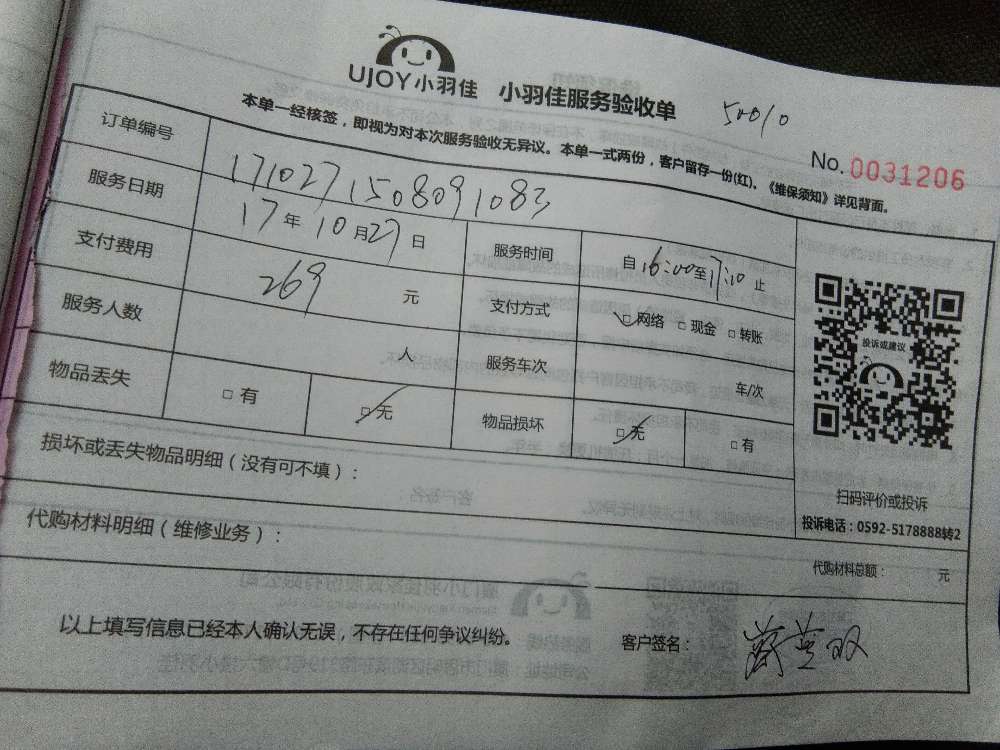 UJOY小羽佳 小羽佳服务验收单
50010
本单一经核签，即视为对本次服务验收无异议。本单一式两份，客户留存一份(红)、《维保须知》详见背面。
No. 0031206
订单编号 1710271508091083
服务日期 17年10月27日 服务时间 自16:00至17:10止
支付费用 269元 支付方式 □网络 □现金 □转账
服务人数 人 服务车次 车/次
物品丢失 □有 □无 物品损坏 □无 □有
投诉或建议
扫码评价或投诉
投诉电话：0592-5178888转2
损坏或丢失物品明细（没有可不填）：
代购材料明细（维修业务）：
代购材料总额： 元
以上填写信息已经本人确认无误，不存在任何争议纠纷。
客户签名：